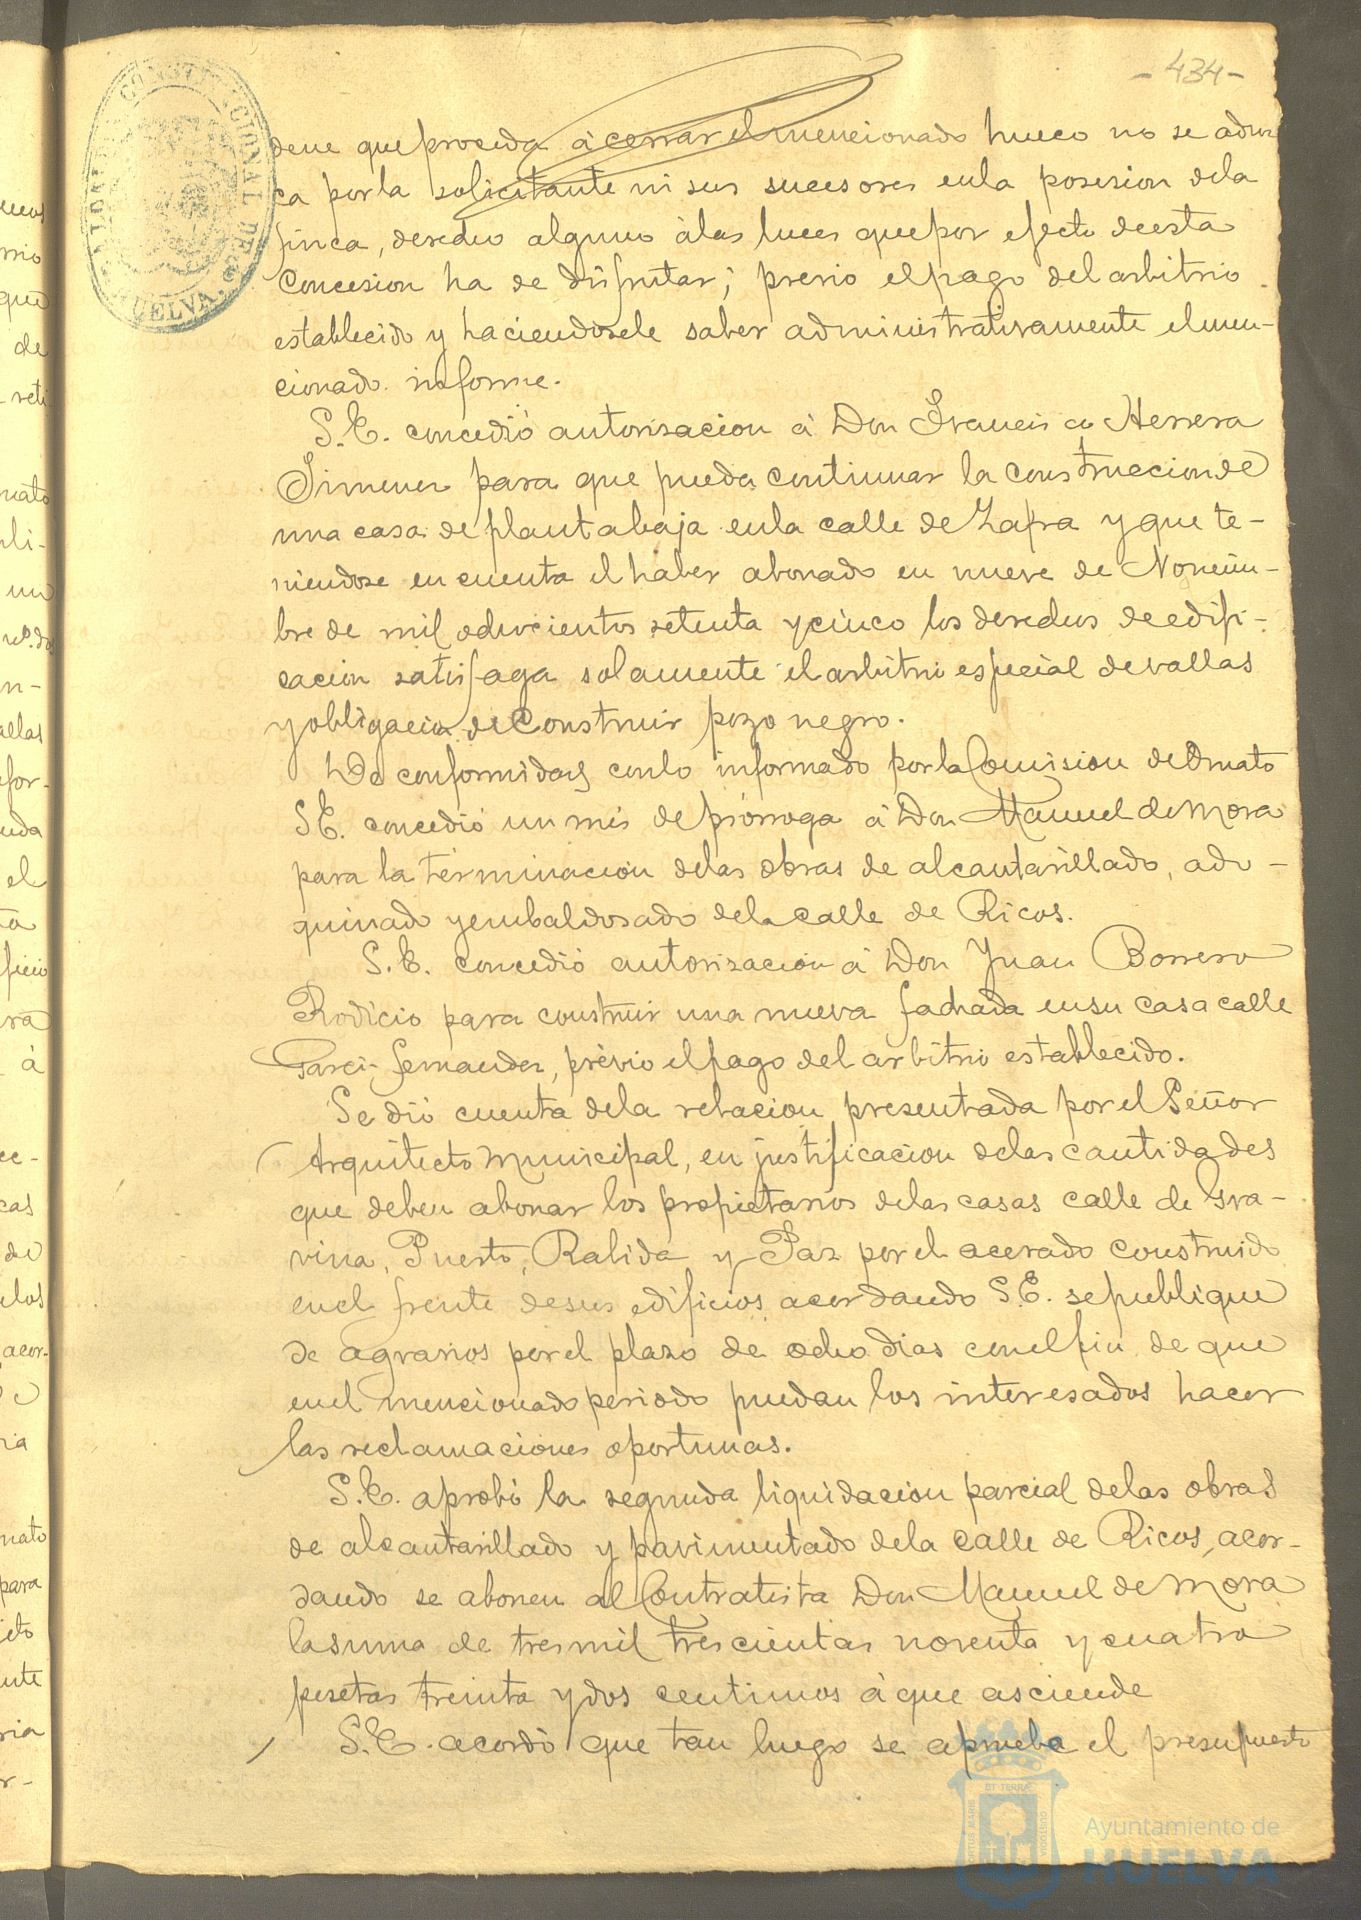 - 434 -
AYUNTAMIENTO CONSTITUCIONAL DE HUELVA
dene que proceda à cerrar el mencionado hueco no se aduz
ca por la solicitante ni sus sucesores en la posesion de la
finca, derecho alguno à las luces que por efecto de esta
Concesion ha de disfrutar; previo el pago del arbitrio
establecido y haciendosele saber administrativamente el men-
cionado informe.
S.E. concedió autorizacion á Don Francisco Herrera
Jimenez para que pueda continuar la construccion de
una casa de planta baja en la calle de Zafra y que te-
niendose en cuenta el haber abonado en nueve de Noviem-
bre de mil ochocientos setenta y cinco los derechos de edifi-
cacion satisfaga solamente el arbitrio especial de vallas
y obligacion de Construir pozo negro.
De conformidad con lo informado por la Comision de Ornato
S.E. concedió un mes de prórroga á Don Manuel de Mora
para la terminacion de las obras de alcantarillado, ado-
quinado y embaldosado de la calle de Ricos.
S.E. concedió autorizacion á Don Juan Borrero
Rodicio para construir una nueva fachada en su casa calle
Garci-Fernandez, prévio el pago del arbitrio establecido.
Se dió cuenta de la relacion presentada por el Señor
Arquitecto Municipal, en justificacion de las cantidades
que deben abonar los propietarios de las casas calle de Gra-
vina, Puerto, Rabida y Paz por el acerado construido
en el frente de sus edificios, acordando S.E. se publique
de agravios por el plazo de ocho dias con el fin de que
en el mencionado periodo puedan los interesados hacer
las reclamaciones oportunas.
S.E. aprobó la segunda liquidacion parcial de las obras
de alcantarillado y pavimentado de la calle de Ricos, acor-
dando se abonen al Contratista Don Manuel de Mora
la suma de tres mil trescientas noventa y cuatro
pesetas treinta y dos centimos á que asciende
S.E. acordó que tan luego se apruebe el presupuesto
Ayuntamiento de
HUELVA